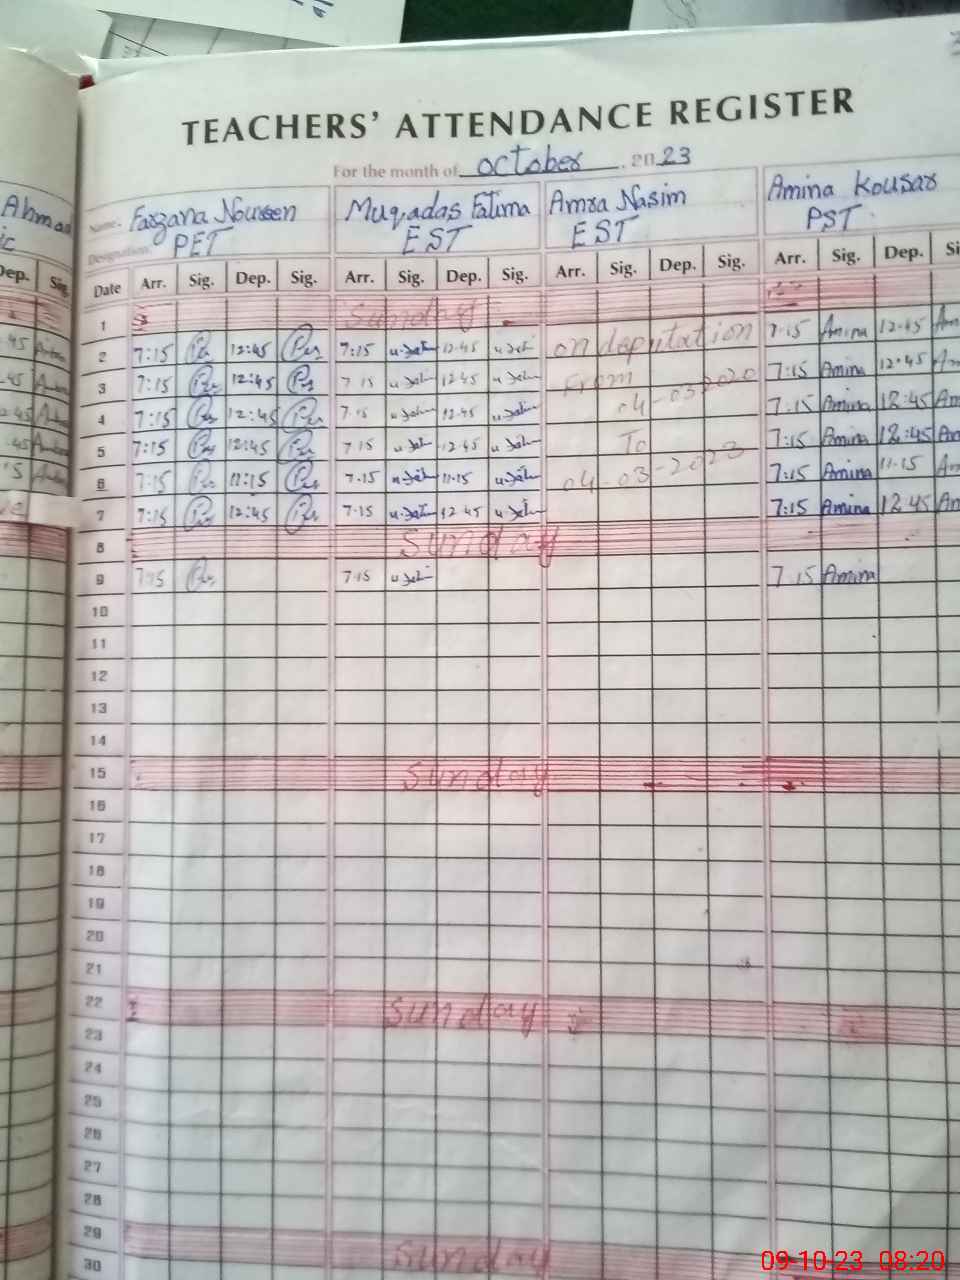 TEACHERS' ATTENDANCE REGISTER
For the month of October 2023
Ahmad
Name: Farzana Noureen Muqadas Fatima Amra Nasim Amina Kousar
Designation: PET EST EST PST
Dep. Sig. Date Arr. Sig. Dep. Sig. Arr. Sig. Dep. Sig. Arr. Sig. Dep. Sig. Arr. Sig. Dep. Si
1 Sunday
2 7:15 12:45 7:15 12-45 on deputation 7:15 Amina 12-45 Am
3 7:15 12:45 7 15 12 45 From 7:15 Amina 12:45 Am
4 7:15 12:45 7.15 12.45 04-03-2020 7:15 Amina 12:45 Am
5 7:15 12:45 7 15 12.45 To 7:15 Amina 12:45 Am
6 7:15 11:15 7.15 11.15 04-03-2023 7:15 Amina 11-15 Am
7 7:15 12:45 7.15 12 45 7:15 Amina 12.45 Am
8 Sunday
9 7:15 7.15 7.15 Amina
10
11
12
13
14
15 Sunday
16
17
18
19
20
21
22 Sunday
23
24
25
26
27
28
29 Sunday
30
09-10-23 08:20